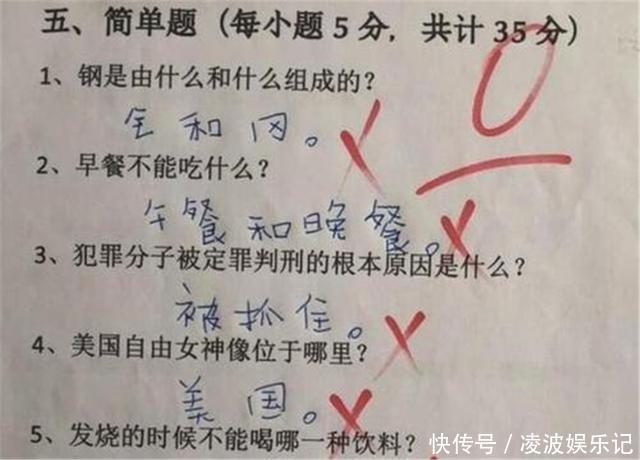 五、简单题（每小题5分，共计35分）
0
1、钢是由什么和什么组成的？
钅和冈。
2、早餐不能吃什么？
午餐和晚餐。
3、犯罪分子被定罪判刑的根本原因是什么？
被抓住。
4、美国自由女神像位于哪里？
美国。
5、发烧的时候不能喝哪一种饮料？
快传号／凌波娱乐记